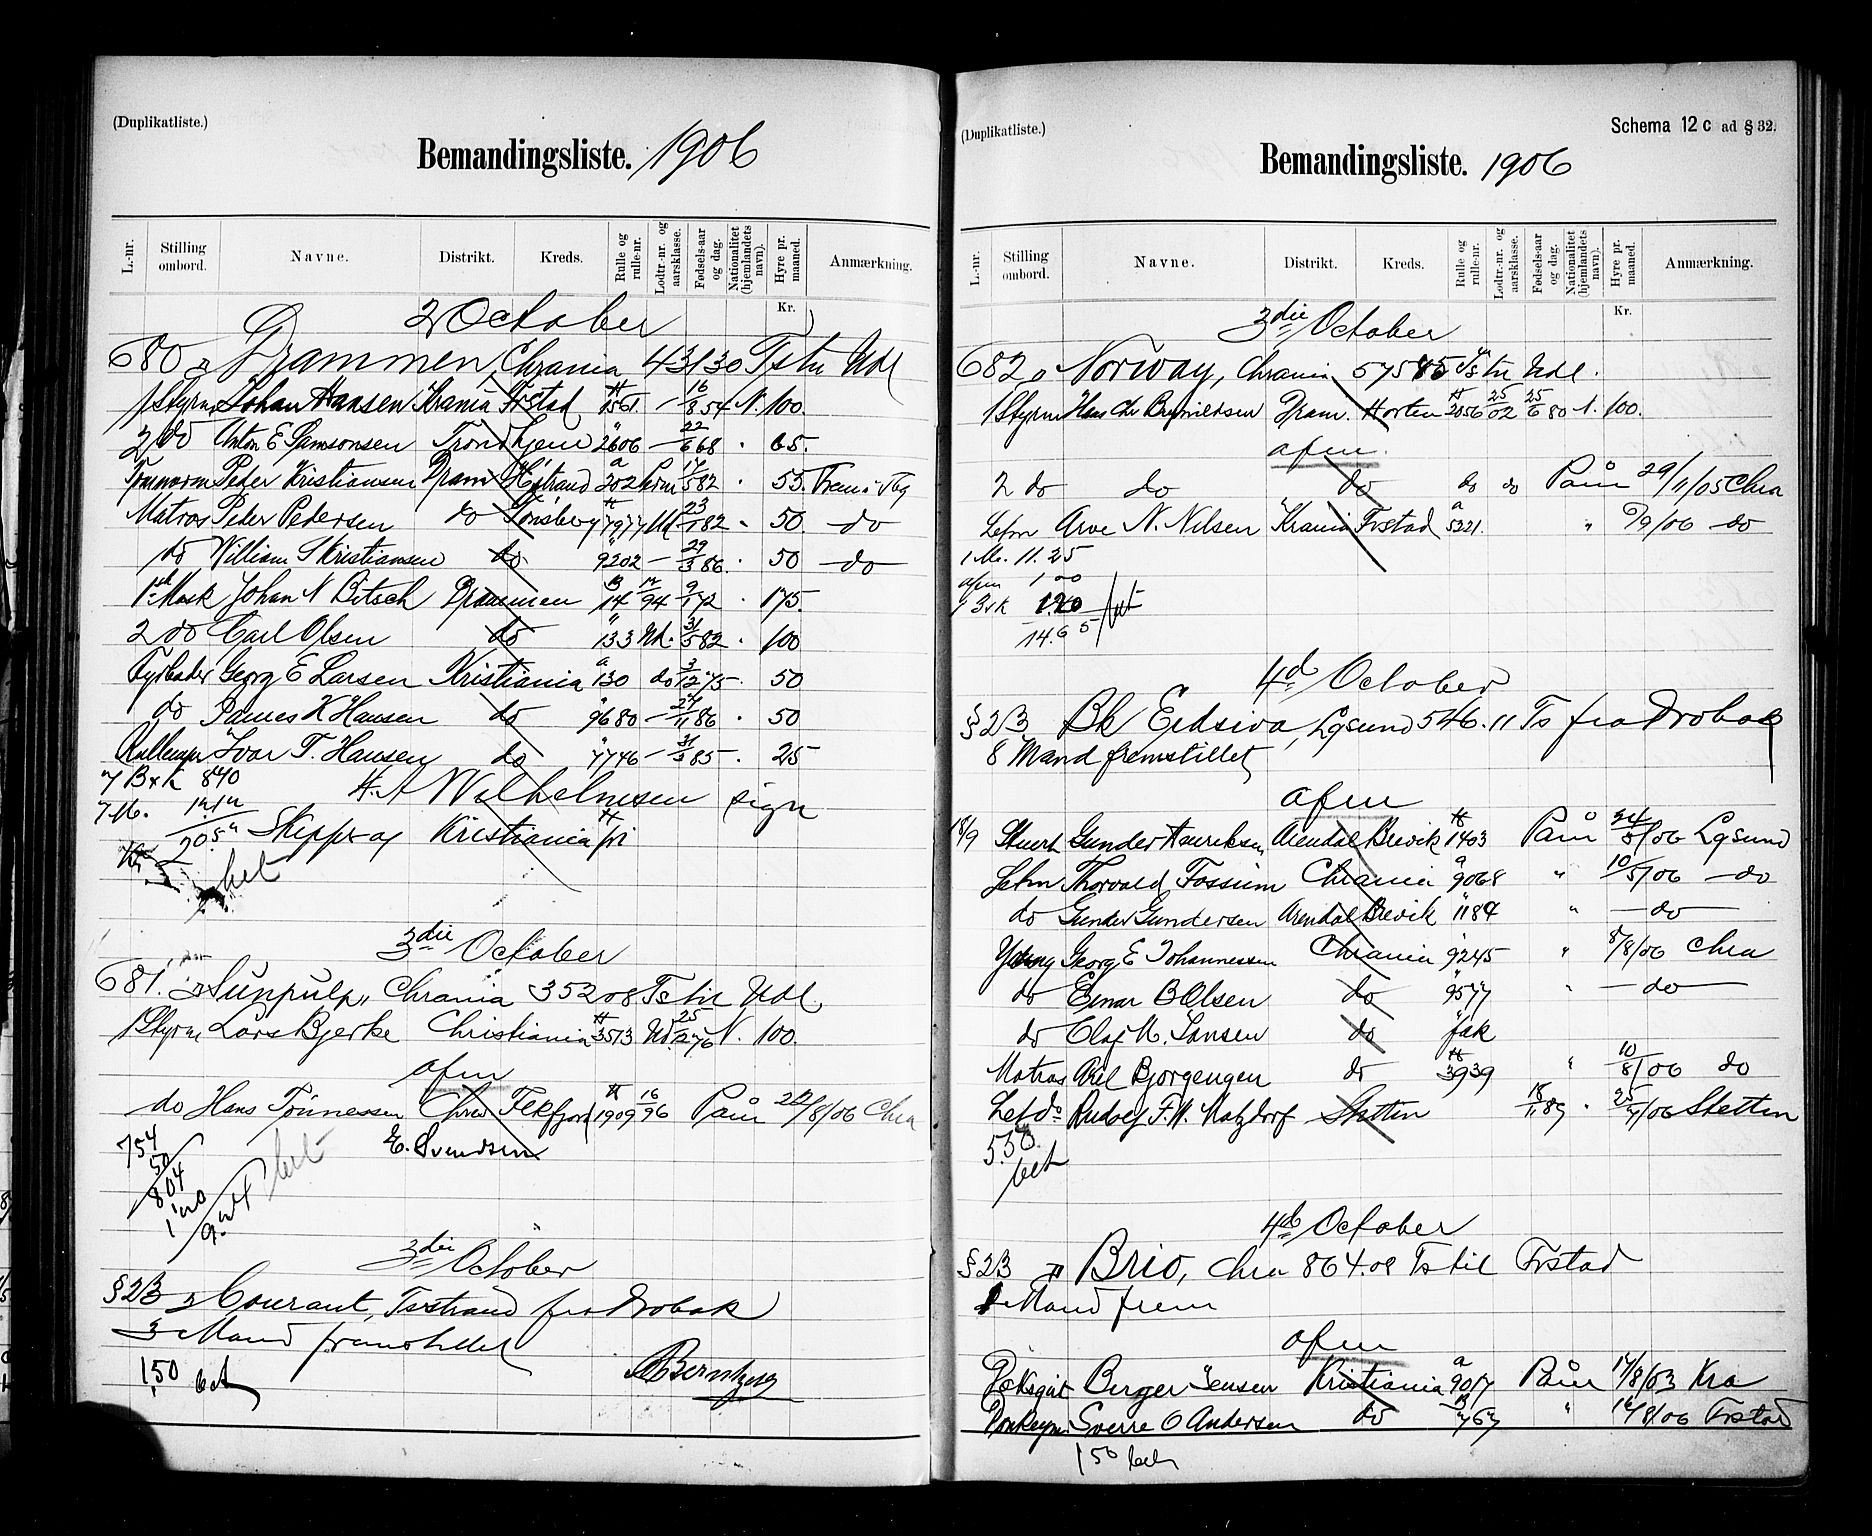 (Duplikatliste.)
Bemandingsliste. 1906
L.-nr. Stilling ombord. Navne. Distrikt. Kreds. Rulle og rulle-nr. Lodtr.-nr. og aarsklasse. Fødsels-aar og dag. Nationalitet (hjemlandets navn). Hyre pr. maaned. Anmærkning.
Kr.
2 October
680 Drammen, Chrania 431 30 Ts til Udl
1 Styrm Johan Hansen Krania Frstad 1561 – 16/8 54 N. 100.
2 do Anton E Samsonsen Trondhjem 2606 – 22/6 68 65.
Peder Kristiansen Dram 202 17/5 82 55.
Matros Peter Pedersen do Tønsberg 7977 Ud 23/1 82 50 – do
do William S Kristiansen do 9202 – 29/3 86 50 – do –
1st Mask Johan N Bitsch Drammen 14 17/94 9/1 72 175.
2 do Carl Olsen do 133 Ud. 31/5 82 100
Fyrbøder Georg E Larsen Kristiania 130 do 3/12 75 50
do James K Hansen do 9680 – 27/11 86 50
Ivar T. Hansen do 7746 – 31/3 85 25
7 Bxk 840
7 M.
H. A Wilhelmsen sign
Skipps og Kristiania fri
bet
3die October
681. Sunpulp, Chrania 352 08 Ts til Udl.
1 Styrm Lars Bjerke Christiania 3513 Ud. 25/12 76 N. 100.
afm
do Hans Tönnessen Chrsd Fekfjord 1909 16/96 Paam 24/8/06 Chra
E. Svendsen
754
50
804
bet
3die October
§ 23 Courant, Tvstrand fra Drobak
3 Mand fremstillet
1,50 bet
(Duplikatliste.)
Schema 12 c ad § 32.
Bemandingsliste. 1906
L.-nr. Stilling ombord. Navne. Distrikt. Kreds. Rulle og rulle-nr. Lodtr.-nr. og aarsklasse. Fødsels-aar og dag. Nationalitet (hjemlandets navn). Hyre pr. maaned. Anmærkning.
Kr.
3die October
682 Norway, Chrania 575 85 Ts til Udl.
1 Styrm Hans Chr Brynildsen Dram. Horten 2056 25/02 25/6 80 N. 100.
afm.
2 do do do do do Påm 29/11/05 Chra
Letm Arve N. Nilsen Krania Frstad 5221. " 9/9/06 – do
1 M. 11.25
afm 1 00
1 Bxk
14.65
bet
4d October
§ 23 Bk Eidsiva, Lgsund 546.11 Ts fra Drobak
8 Mand fremstillet
afm
18/9 Stuert Gunder Hanriksen Arendal Brevik 1403 Påm 24/5/06 Lgsund
Letm Thorvald Fossum Chrania 9068 " 10/5/06 – do
do Gunder Gundersen Arendal Brevik 1184 " – do –
Yøung Georg E Johannessen Chrania 9245 " 8/8/06 Chra
do Einar B Olsen do 9577 " – do –
do Olaf M. Jansen do fak
Matros Axel Bjorgengen do 3939 " 10/8/06 do
Let do Rudolf F. W. Matzdorf Stettin 18/11 89 25/7/06 Stettin
5.50
bet
4d October
§ 23 Brio, Chra 864.08 Ts til Frstad
Mand frem
afm
Dæksgut Berger Jensen Kristiania 9017 Påm 17/8/03 Kra
Donkeym Sverre O Andersen do 767 " 14/8/06 Frstad
1 50 bet